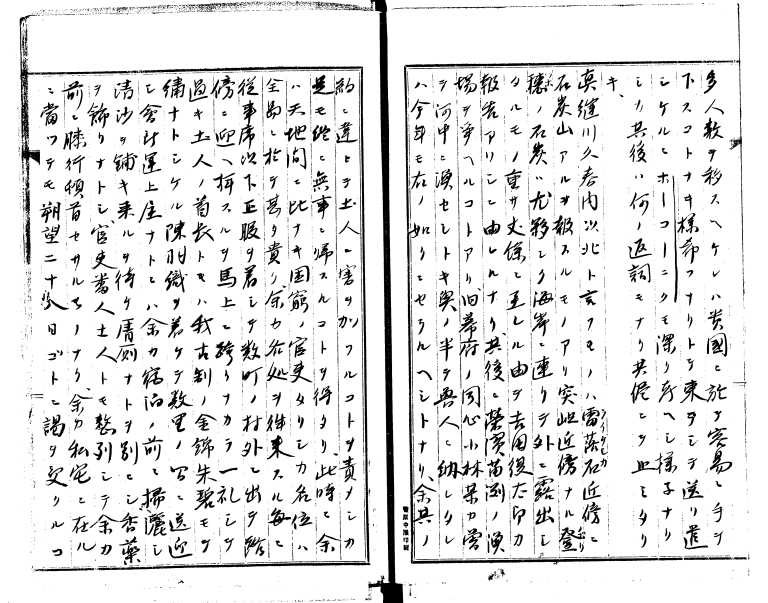 多人数ヲ移スヘケレハ貴國ニ於テ容易ニ手ヲ
下スコトナキ様命フナリトテ東ヲシテ送リ遣
シケルニホーコーニクモ深ク所ヘシ様子ナリ
シカ其後ハ何ノ返詞モナリ共侭ニテ止ミタリ
キ
真縫川久春内以北ト云フモノハ雷落石近傍ニ
石炭山アルヲ報スルモノアリ突岨近傍ナル登
穂ノ石炭ハ尤夥シク海岸ニ連リテ外ニ露出シ
タルモノ重サ丈條ニ至レル由ヲ吉田俊太郎カ
報告アリシニ由レルナリ其後ニ榮濱苗渕ノ漁
場ヲ爭ヘルコトアリ旧幕府ノ同心小林某カ嘗
テ河中ニ漁セシトキ與ノ半ヲ魯人ニ納レタレ
ハ今年モ右ノ如クニセラルヘシトナリ余其ノ
約ニ違ヒテ土人ニ害ヲ加フルコトヲ責メシカ
是モ終ニ無事ニ帰スルコトヲ得タリ此時ニ余
ハ天地間ニ比ナキ困窮ノ官吏タリシカ名位ハ
全島ニ於テ甚タ貴ク余カ各処ヲ往来スル毎ニ
従事席以下正服ヲ着シテ数町ノ村外ニ出テ路
傍ニ迎ヘ拝スルヲ馬上ニ跨リナカラ一礼シテ
過キ土人ノ首長トモハ我古制ノ金錦朱碧モテ
繡ナトシケル陳羽織ヲ着ケテ数里ノ間ニ送迎
シ会計運上屋ナトニハ余カ宿泊ノ前ニ掃灑シ
清沙ヲ鋪キ来ルヲ待ケ厠ナトヲ別ニシ香藥
ヲ飾リナトシ官吏番人土人トモ整列シテ余カ
前ニ膝行頓首セサルモノナク余カ私宅ニ在ル
ニ當ツテモ朔望二十八日ゴトニ謁ヲ受クルコ